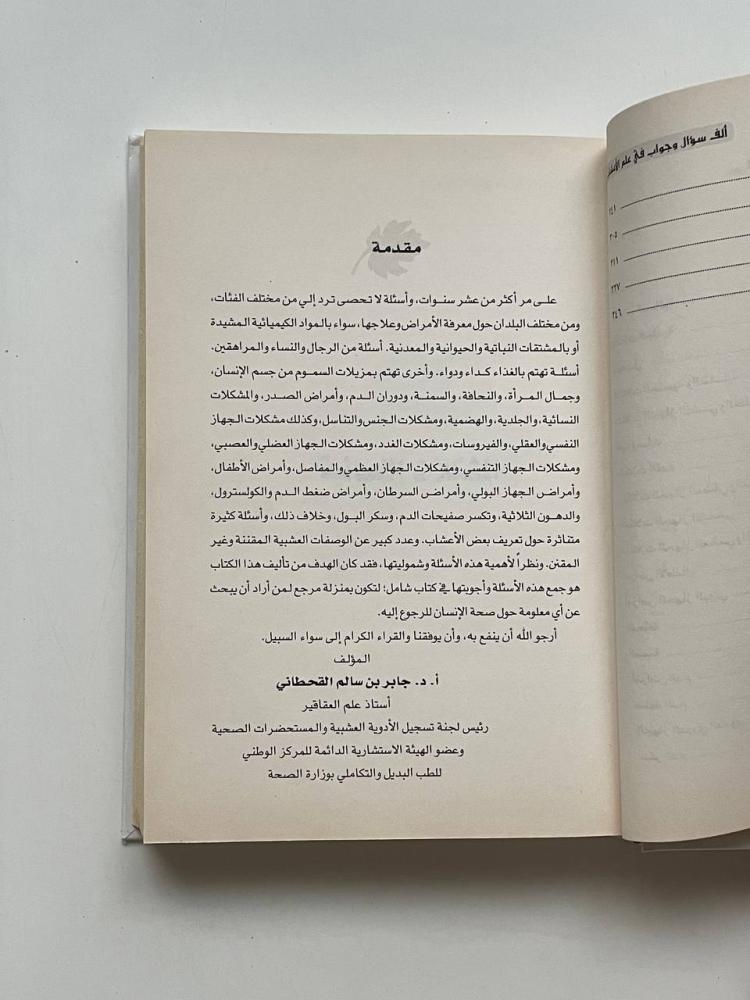 مقدمة
على مر أكثر من عشر سنوات، وأسئلة لا تحصى ترد إلي من مختلف الفئات،
ومن مختلف البلدان حول معرفة الأمراض وعلاجها، سواء بالمواد الكيميائية المشيدة
أو بالمشتقات النباتية والحيوانية والمعدنية. أسئلة من الرجال والنساء والمراهقين.
أسئلة تهتم بالغذاء كداء ودواء. وأخرى تهتم بمزيلات السموم من جسم الإنسان،
وجمال المرأة، والنحافة، والسمنة، ودوران الدم، وأمراض الصدر، والمشكلات
النسائية، والجلدية، والهضمية، ومشكلات الجنس والتناسل، وكذلك مشكلات الجهاز
النفسي والعقلي، والفيروسات، ومشكلات الغدد، ومشكلات الجهاز العضلي والعصبي،
ومشكلات الجهاز التنفسي، ومشكلات الجهاز العظمي والمفاصل، وأمراض الأطفال،
وأمراض الجهاز البولي، وأمراض السرطان، وأمراض ضغط الدم والكولسترول،
والدهون الثلاثية، وتكسر صفيحات الدم، وسكر البول، وخلاف ذلك، وأسئلة كثيرة
متناثرة حول تعريف بعض الأعشاب. وعدد كبير عن الوصفات العشبية المقننة وغير
المقنن. ونظراً لأهمية هذه الأسئلة وشموليتها، فقد كان الهدف من تأليف هذا الكتاب
هو جمع هذه الأسئلة وأجوبتها في كتاب شامل؛ لتكون بمنزلة مرجع لمن أراد أن يبحث
عن أي معلومة حول صحة الإنسان للرجوع إليه.
أرجو الله أن ينفع به، وأن يوفقنا والقراء الكرام إلى سواء السبيل.
المؤلف
أ. د. جابر بن سالم القحطاني
أستاذ علم العقاقير
رئيس لجنة تسجيل الأدوية العشبية والمستحضرات الصحية
وعضو الهيئة الاستشارية الدائمة للمركز الوطني
للطب البديل والتكاملي بوزارة الصحة
ألف سؤال وجواب في علم
٢١١
٢٣٧
٢٤٦